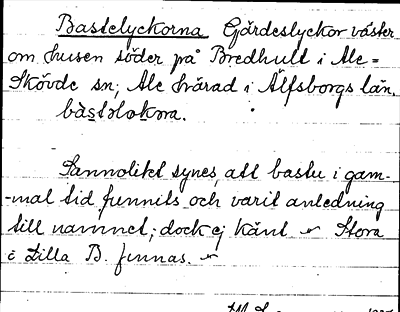 Bastelyckorna Gärdeslyckor väster
om husen söder på Bredhult i Ale=
Skövde sn; Ale härad i Älfsborgs län.
bàstəlokɷra.
Sannolikt synes, att bastu i gam-
-mal tid funnits och varit anledning
till namnet; dock ej känt Stora
& Lilla B. finnas.